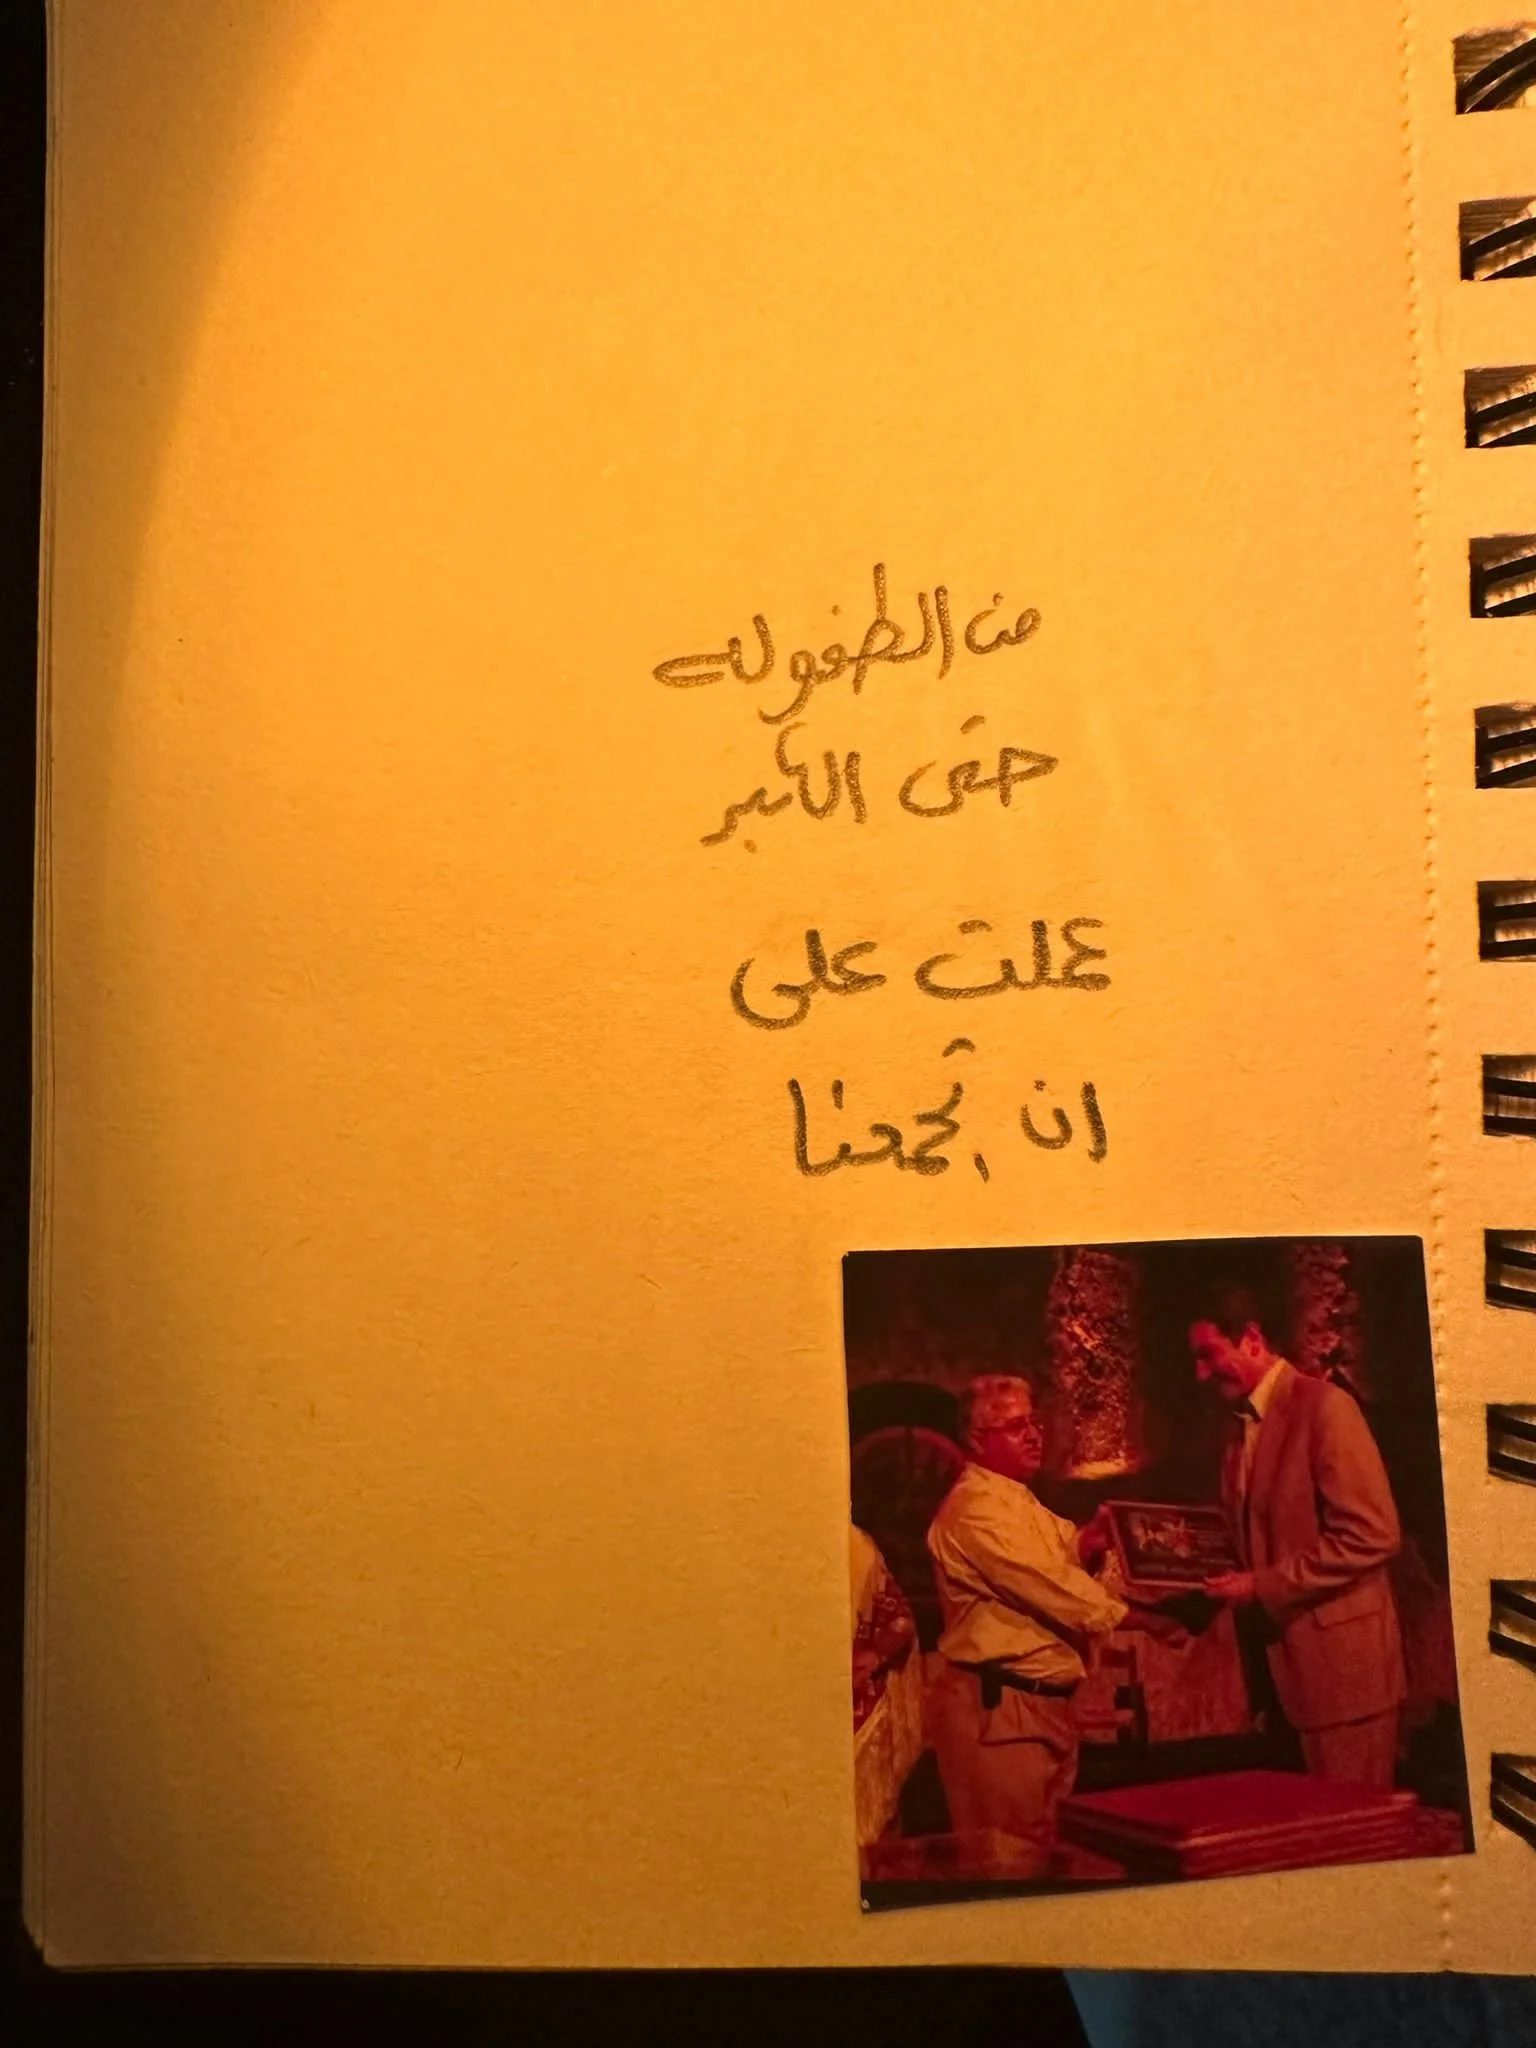 من الطفوله
حتى الكبر
عملت على
ان تجمعنا